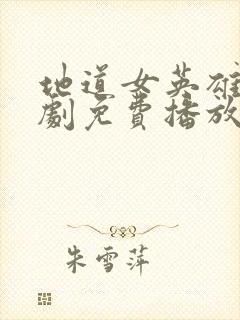 地道女英雄
劇免費播放
朱雪萍